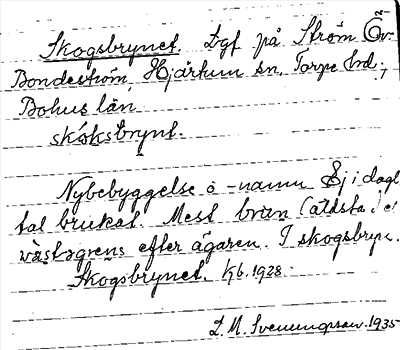 Skogsbrynet. Lgf på Ström Öv-
Bondeström, Hjärtum sn, Torpe hd;
Bohus län
skókstbrynt.
Nybebyggelse o -namn Ej i dagl
tal brukat. Mest (äldsta)
västergrens efter ägaren. I skogsbryn.
Skogsbrynet. 1/6 1928.
L. M. Svenungsson. 1935